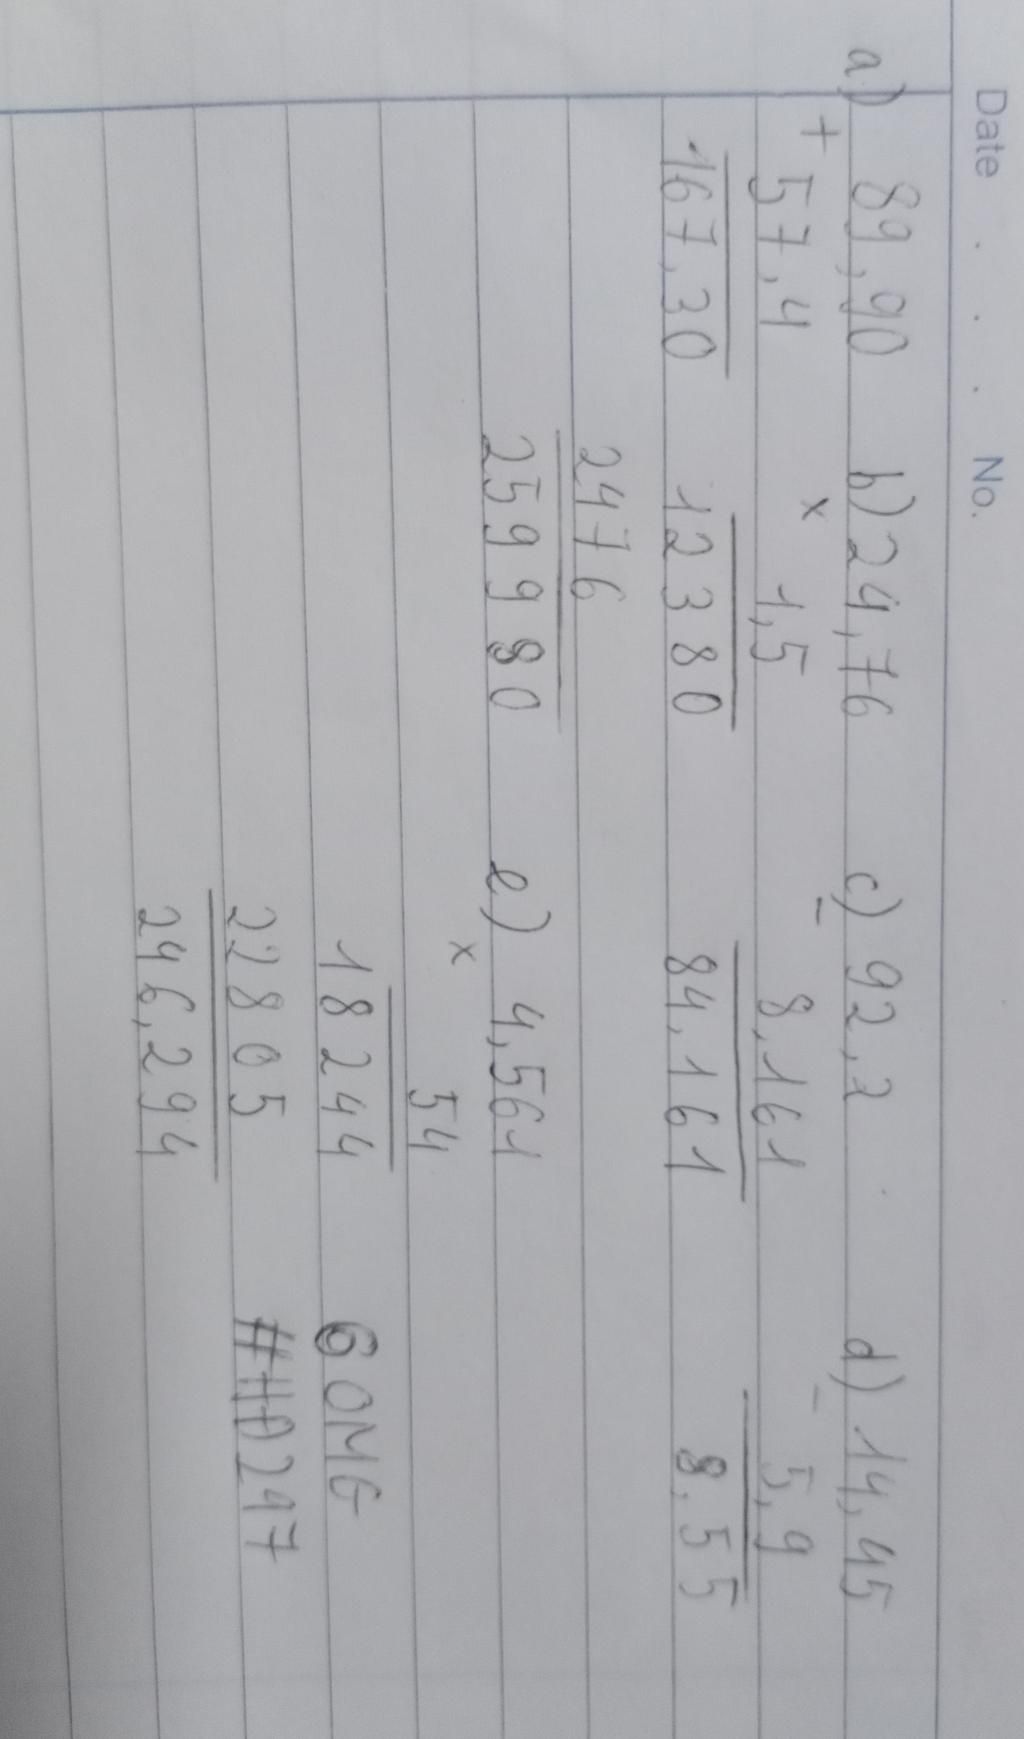 Date . . . No.
a) 89,90 b) 24,76 c) 92,2 d) 14,45
+ 57,4 x 1,5 - 8,161 - 5,9
167,30 12380 84,161 8,55
2476
259980 e) 4,561
x 54
18244 6OMG
22805 #HD247
246,294